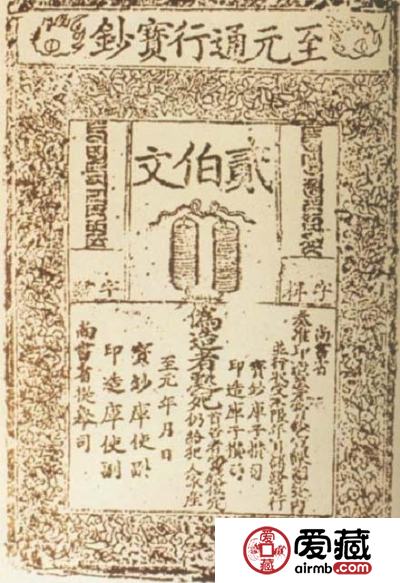 至元通行寶鈔
貳伯文
字
字
尚書省
奏准印造至元寶鈔宣課差役內
並行收受不限年月諸路通行
寶鈔庫子攢司
印造庫子攢司
僞造者處死
首告者賞仍給犯人家產
至元年月日
寶鈔庫使副
印造庫使副
尚書省提舉司
爱藏
airmb.com